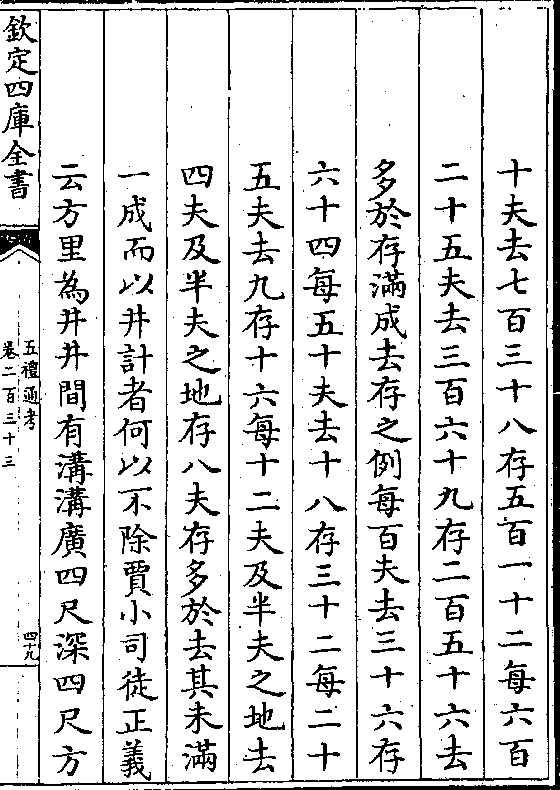 十夫去七百三十八存五百一十二每六百
二十五夫去三百六十九存二百五十六去
多於存滿成去存之例每百夫去三十六存
六十四每五十夫去十八存三十二每二十
五夫去九存十六每十二夫及半夫之地去
四夫及半夫之地存八夫存多於去其未滿
一成而以井計者何以不除賈小司徒正義
云方里為井井間有溝溝廣四尺深四尺方
欽定四庫全書
五禮通考
卷二百三十三
四十九